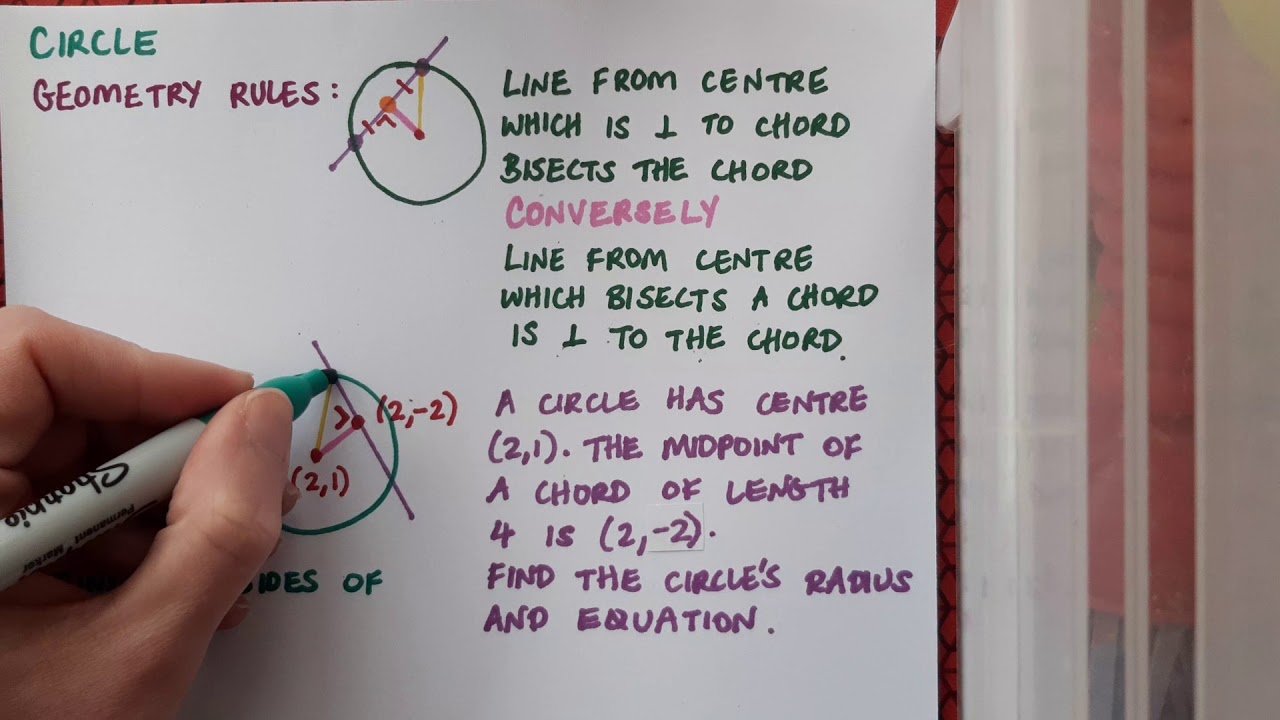 CIRCLE
GEOMETRY RULES:
LINE FROM CENTRE
WHICH IS ⊥ TO CHORD
BISECTS THE CHORD
CONVERSELY
LINE FROM CENTRE
WHICH BISECTS A CHORD
IS ⊥ TO THE CHORD.
(2,-2)
(2,1)
A CIRCLE HAS CENTRE
(2,1). THE MIDPOINT OF
A CHORD OF LENGTH
4 IS (2,-2).
FIND THE CIRCLE'S RADIUS
AND EQUATION.
OF
Sharpie
Permanent Marker